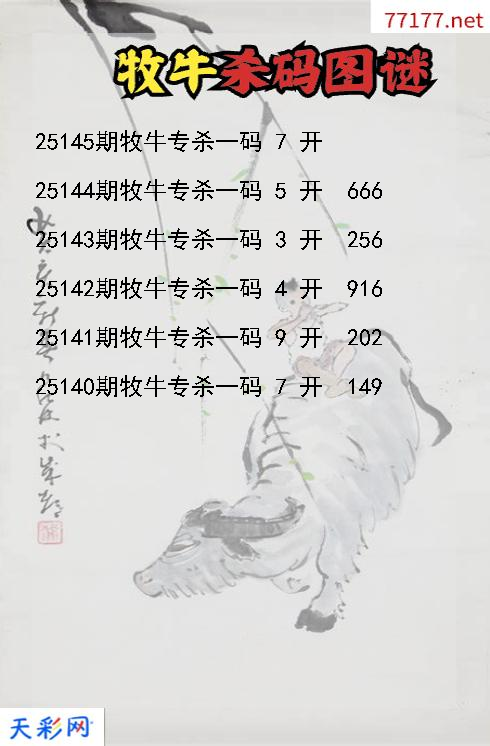 77177.net
牧牛杀码图谜
25145期牧牛专杀一码 7 开
25144期牧牛专杀一码 5 开 666
25143期牧牛专杀一码 3 开 256
25142期牧牛专杀一码 4 开 916
25141期牧牛专杀一码 9 开 202
25140期牧牛专杀一码 7 开 149
天彩网